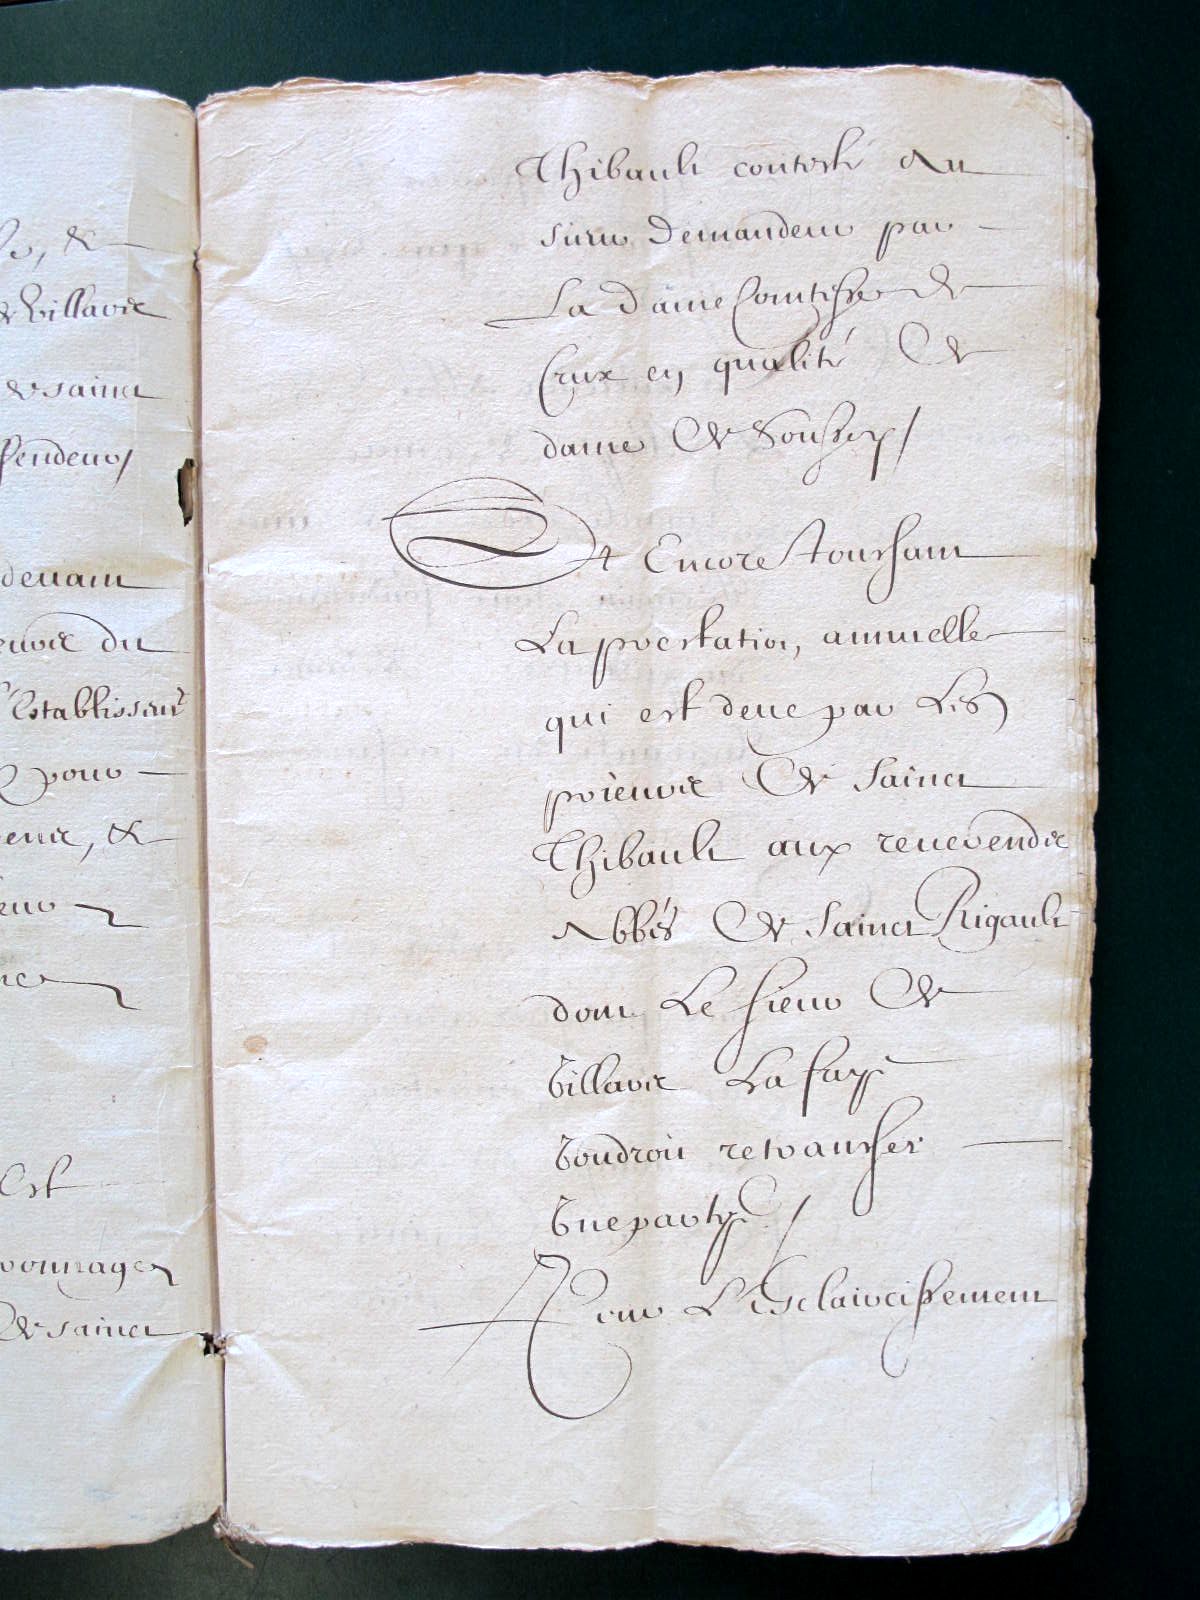 &
de Villars
de sainct
deffendeur
devant
du
L'establissemt
pour
&
Est
de sainct
Thibault contesté au
sieur demandeur par
La dame Comtesse de
Crux en qualité de
dame de Soussey /
Et Encore Touchant
La prestation, annuelle
qui est deue par Les
prieurs de sainct
Thibault aux reverends
Abbés de sainct Rigault
dont Le sieur de
Villars La faye
Voudroit retrancher
Une partye /
Pour L'esclaircissement